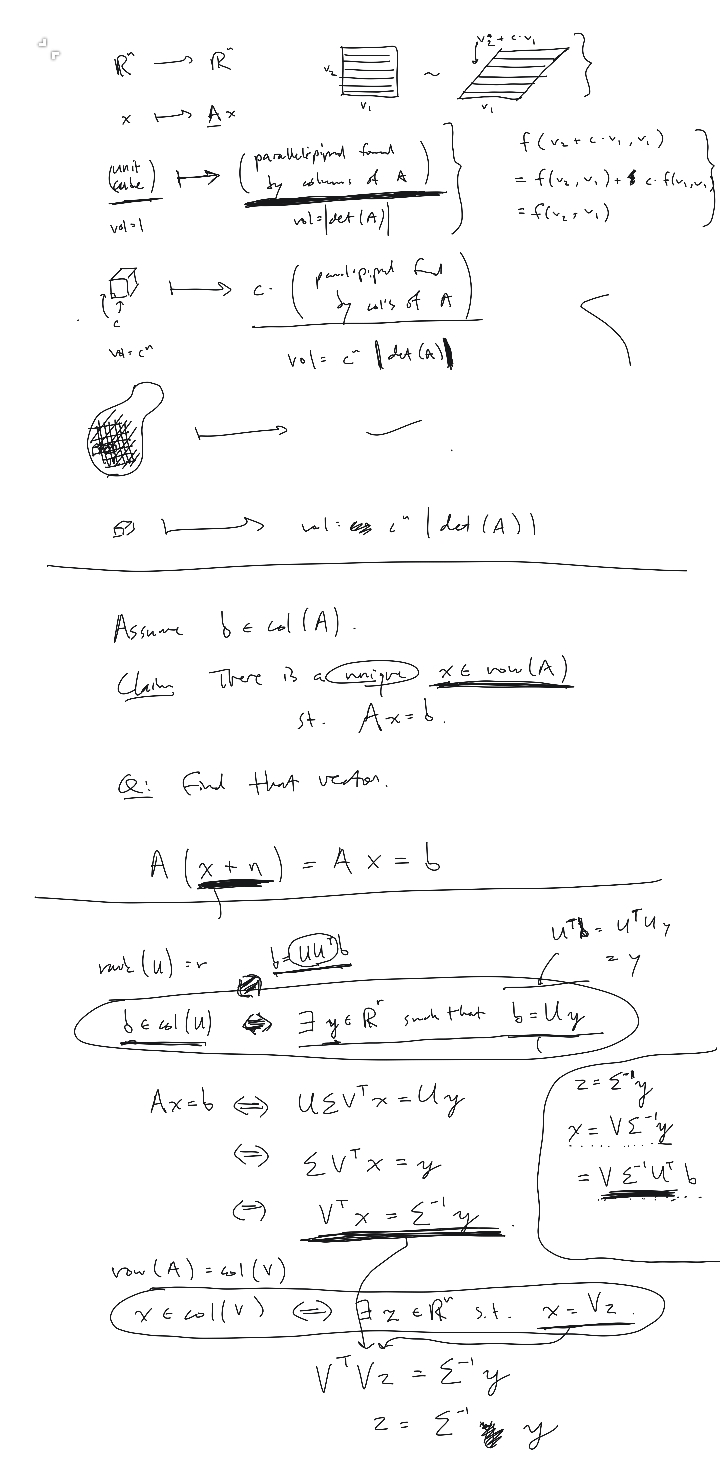 ℝⁿ → ℝⁿ
x ↦ Ax
v₂ ~ v₂ + c·v₁
v₁ v₁
(unit cube) ↦ (parallelepiped found by columns of A)
vol=1 vol=|det(A)|
f(v₂ + c·v₁, v₁)
= f(v₂, v₁) + c·f(v₁, v₁)
= f(v₂, v₁)
↦ c· (parallelepiped found by cols of A)
c
vol = cⁿ vol = cⁿ |det(A)|
↦
↦ vol = cⁿ |det(A)|
Assume b ∈ col(A).
Claim There is a unique x ∈ row(A)
st. Ax = b.
Q: Find that vector.
A(x + n) = Ax = b
rank(U) = r b = UUᵀb
Uᵀb = UᵀUy
= y
b ∈ col(U) ⇔ ∃ y ∈ ℝʳ such that b = Uy
Ax = b ⇔ UΣVᵀx = Uy
⇔ ΣVᵀx = y
⇔ Vᵀx = Σ⁻¹y
z = Σ⁻¹y
x = VΣ⁻¹y
= VΣ⁻¹Uᵀb
row(A) = col(V)
x ∈ col(V) ⇔ ∃ z ∈ ℝʳ s.t. x = Vz.
VᵀVz = Σ⁻¹y
z = Σ⁻¹ y